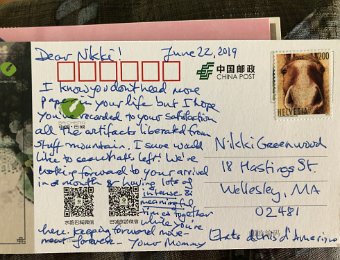 Dear Nikki! June 22, 2019
中国邮政
CHINA POST
200
HELVETIA
I know you don't need more
paper in your life but I hope
you succeeded to your satisfaction
all the artifacts liberated from
stuff mountain. I sure would
like to see what's left! We're
looking forward to your arrival
in a month & having lots of
intense &
meaningful
times together
while you're
here. Keeping forward move-
ment forever - Your Mommy
Nikki Greenwood
18 Hastings St.
Wellesley, MA
02481
Etats Unis d'Amerique